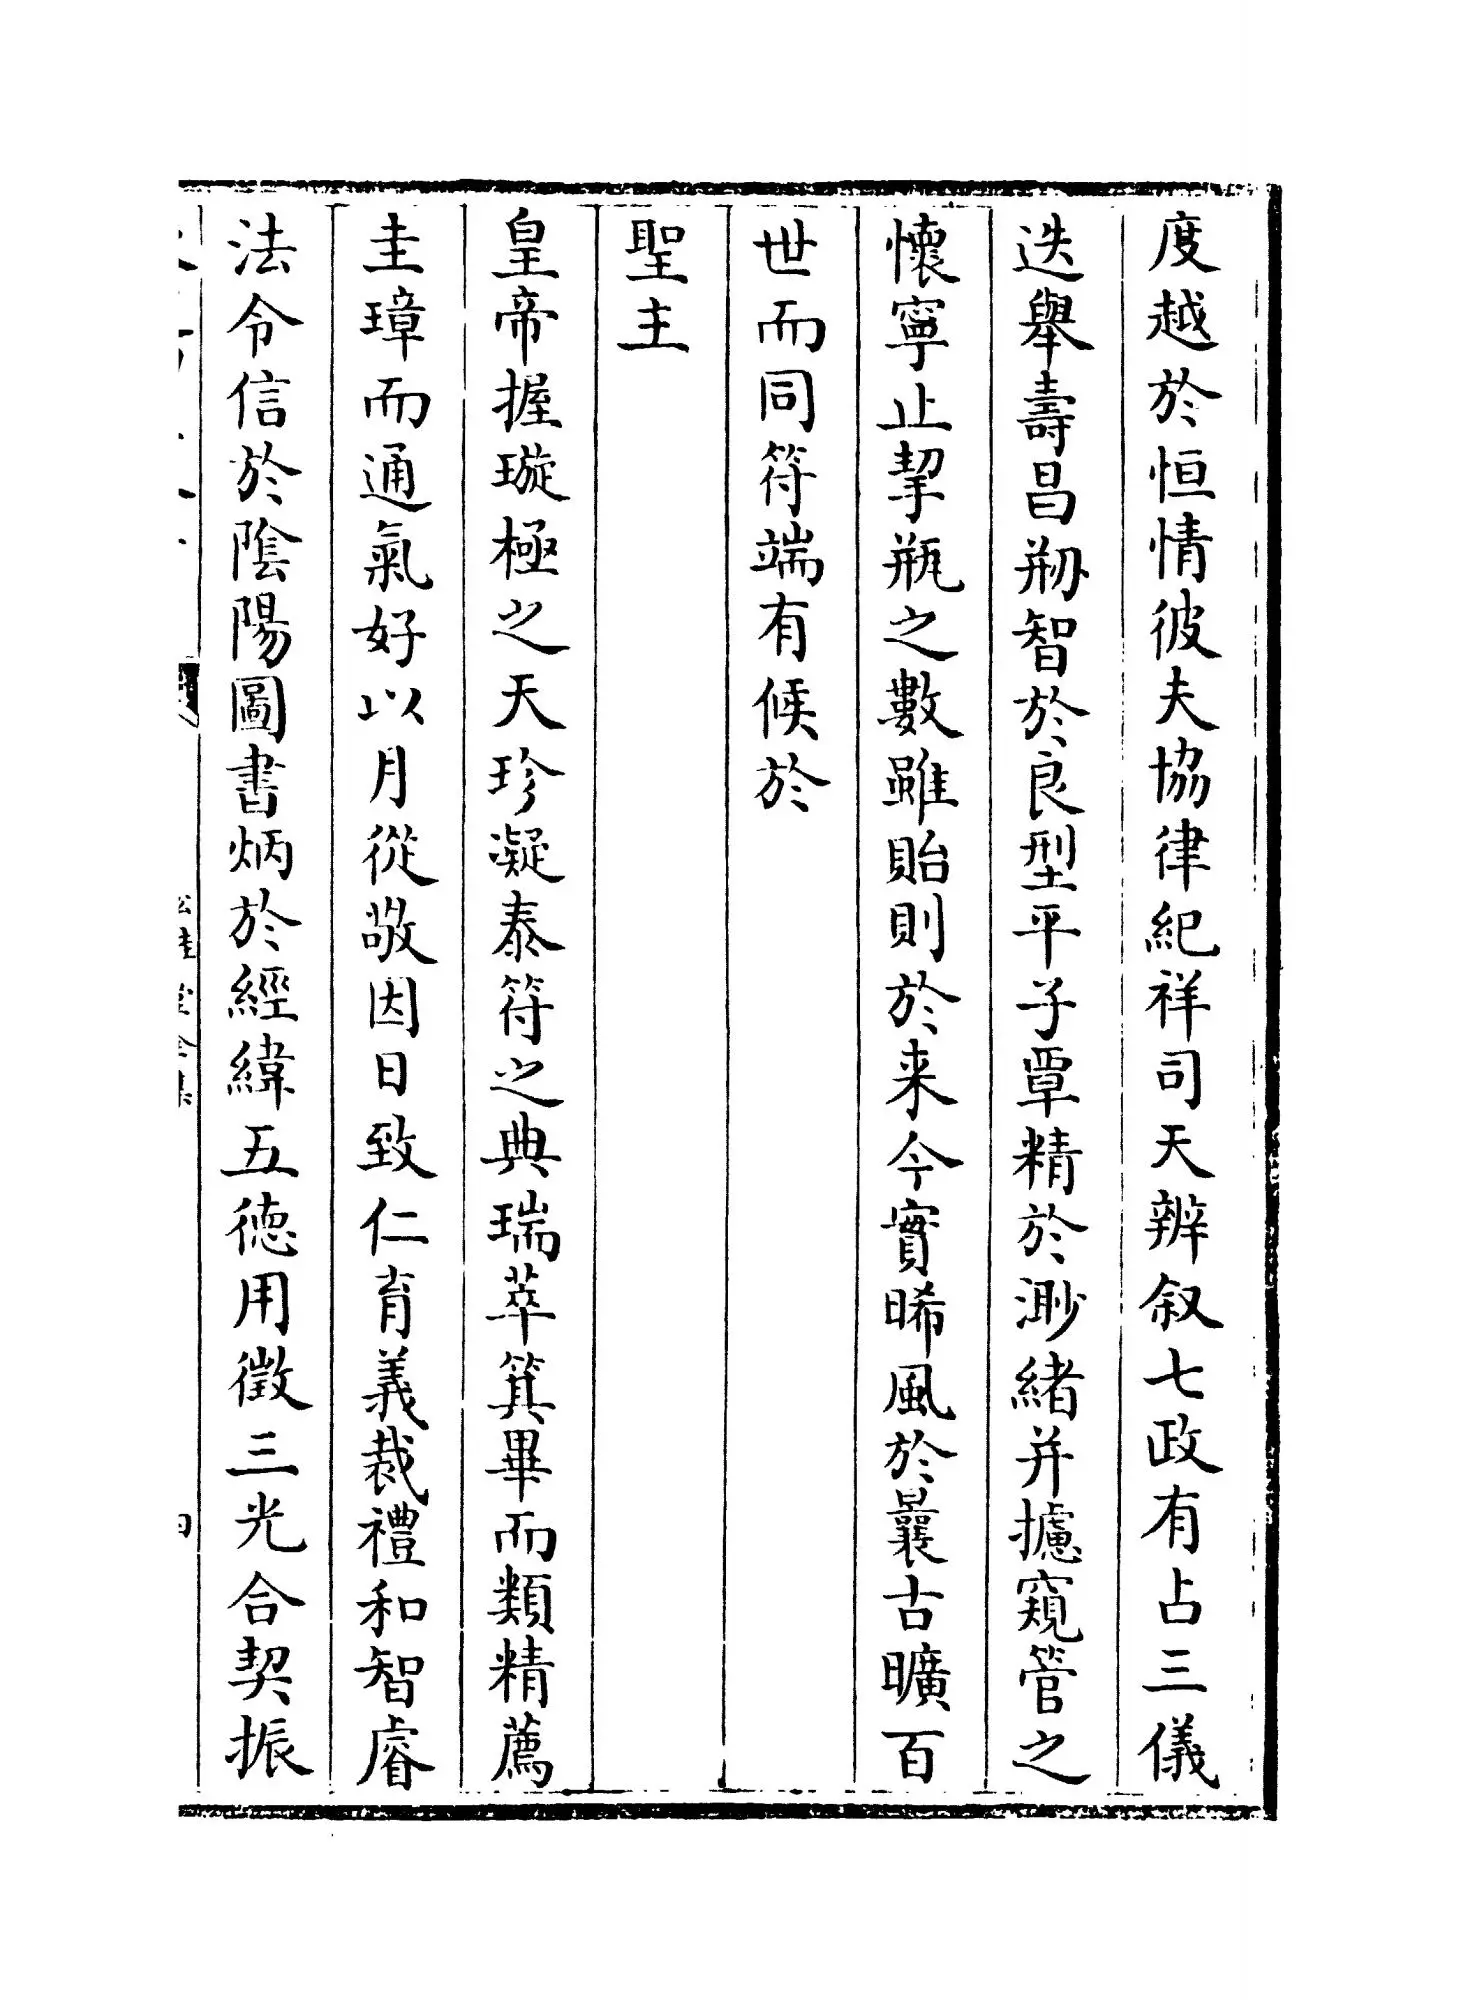 度越於恒情彼夫協律紀祥司天辨叙七政有占三儀
迭舉壽昌刱智於良型平子覃精於渺緒并攄窺管之
懷寧止挈瓶之數雖貽則於来今實晞風於曩古曠百
世而同符端有候於
聖主
皇帝握璇極之天珍凝泰符之典瑞萃箕畢而類精薦
圭璋而通氣好以月從敬因日致仁育義裁禮和智睿
法令信於陰陽圖書炳於經緯五徳用徵三光合契振